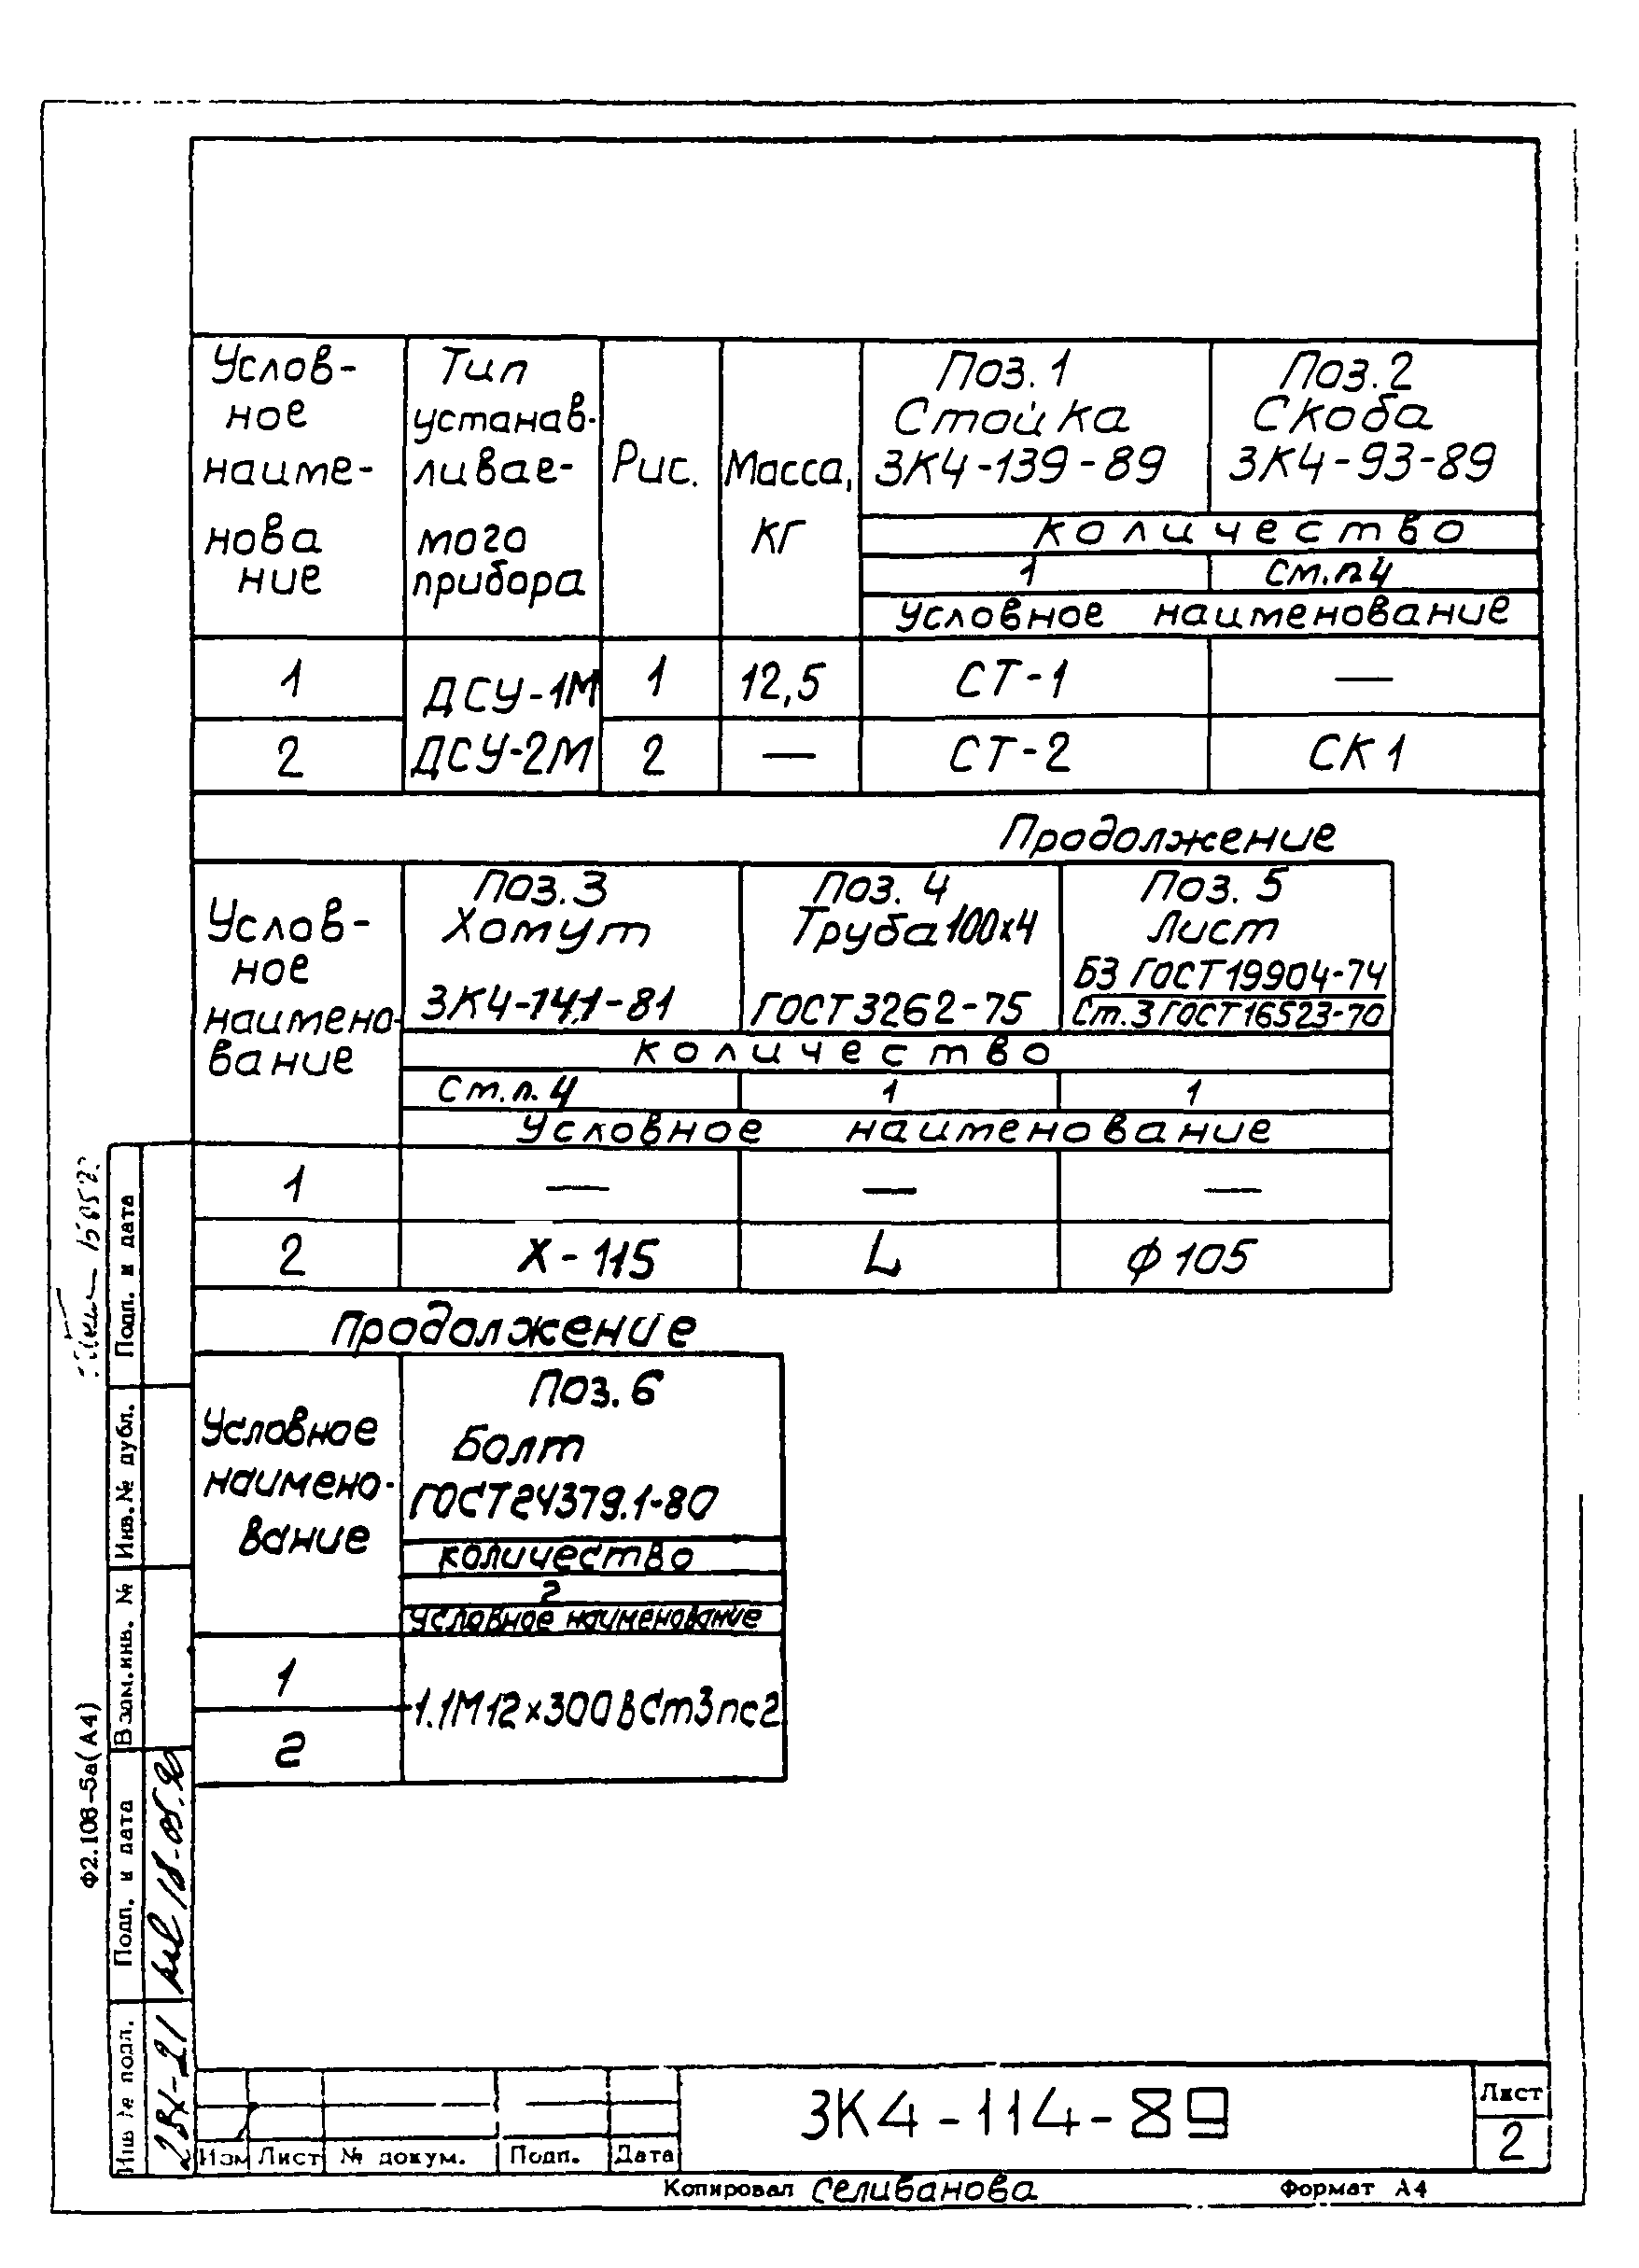 Услов-
ное
наиме-
нова
ние
Тип
устанав-
ливае-
мого
прибора
Рис.
Масса,
кг
Поз. 1
Стойка
ЗК4-139-89
Поз. 2
Скоба
ЗК4-93-89
количество
1 см.п.4
Условное наименование
1 ДСУ-1М 1 12,5 СТ-1 —
2 ДСУ-2М 2 — СТ-2 СК1
Продолжение
Услов-
ное
наимено-
вание
Поз. 3
Хомут
ЗК4-14.1-81
Поз. 4
Труба 100х4
ГОСТ 3262-75
Поз. 5
Лист
БЗ ГОСТ 19904-74
Ст.3 ГОСТ 16523-70
количество
Ст.п.4 1 1
Условное наименование
1 — — —
2 Х-115 L ф 105
Продолжение
Условное
наимено-
вание
Поз. 6
Болт
ГОСТ 24379.1-80
количество
2
Условное наименование
1
1.1М12х300ВСт3пс2
2
Подп. и дата
Инв. № дубл.
Взам. инв. №
Подп. и дата
18.05.90
Инв № подл.
Ф2.106-5а(А4)
Изм Лист № докум. Подп. Дата
ЗК4-114-89
Лист
2
Копировал Селиванова
Формат А4